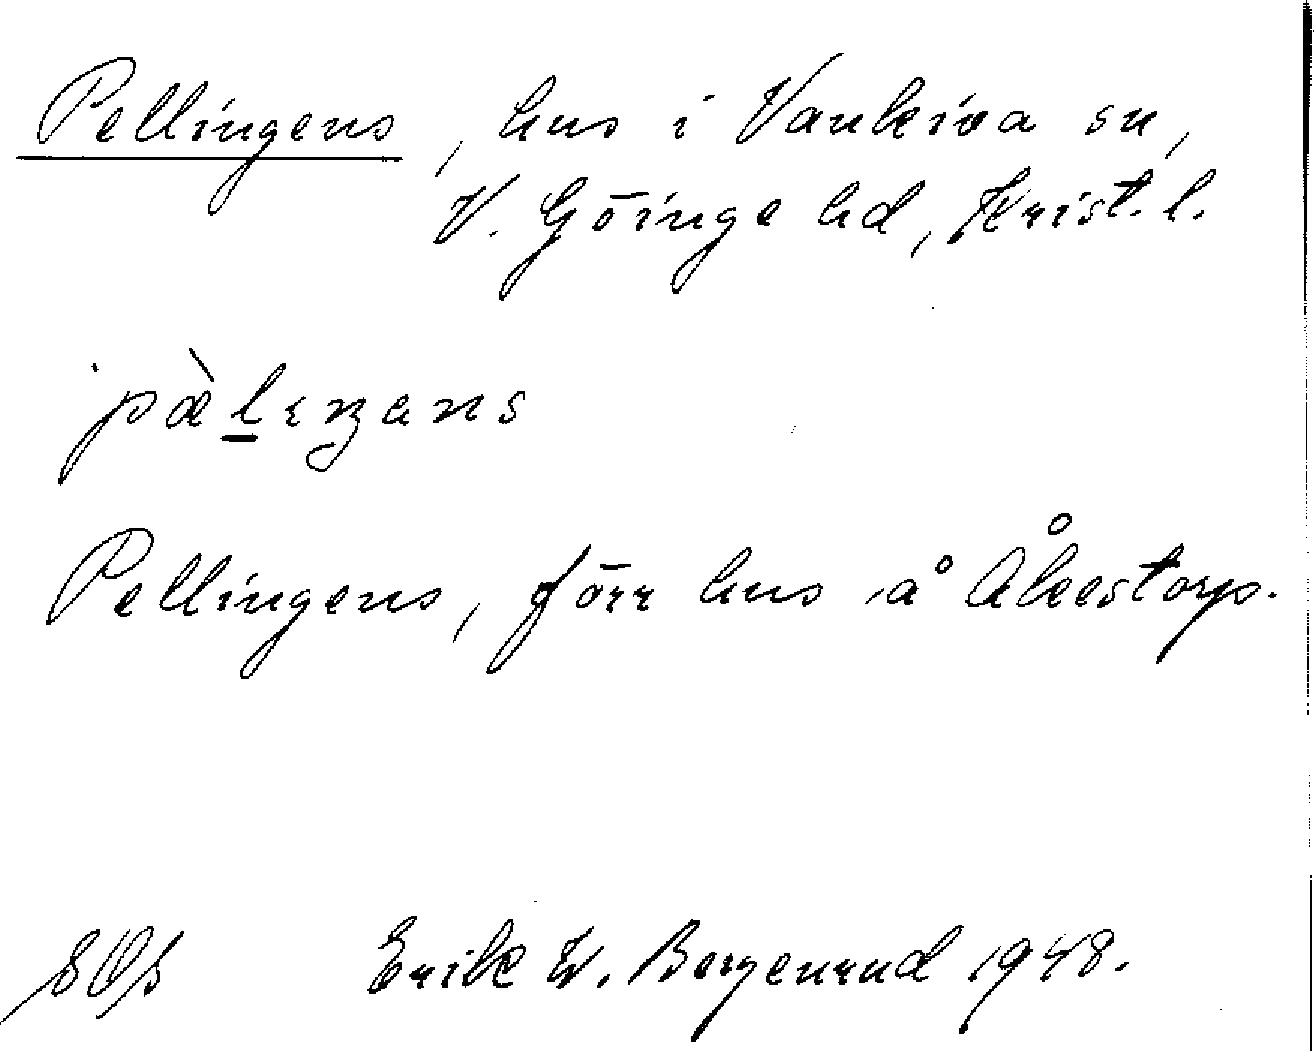 Pellingens, hus i Vankiva sn,
V. Göinge hd, Krist. l.
pæ̀lıŋans
Pellingens, förr hus å Åkestorp.
Erik W. Bergenrud 1948.